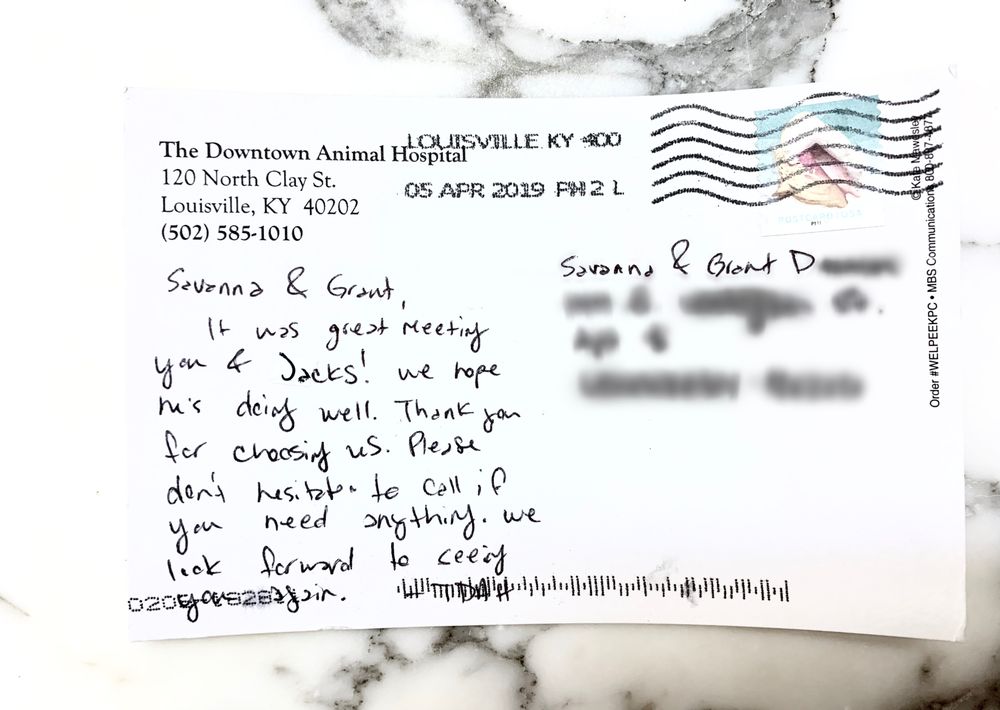 The Downtown Animal Hospital
120 North Clay St.
Louisville, KY 40202
(502) 585-1010
LOUISVILLE KY 400
05 APR 2019 PM 2 L
POSTCARD USA
Savanna & Grant D
Savanna & Grant,
It was great meeting
you & Jacks! we hope
he's doing well. Thank you
for choosing us. Please
don't hesitate to call if
you need anything. we
look forward to seeing
you again.
Order #WELPEEKPC • MBS Communications